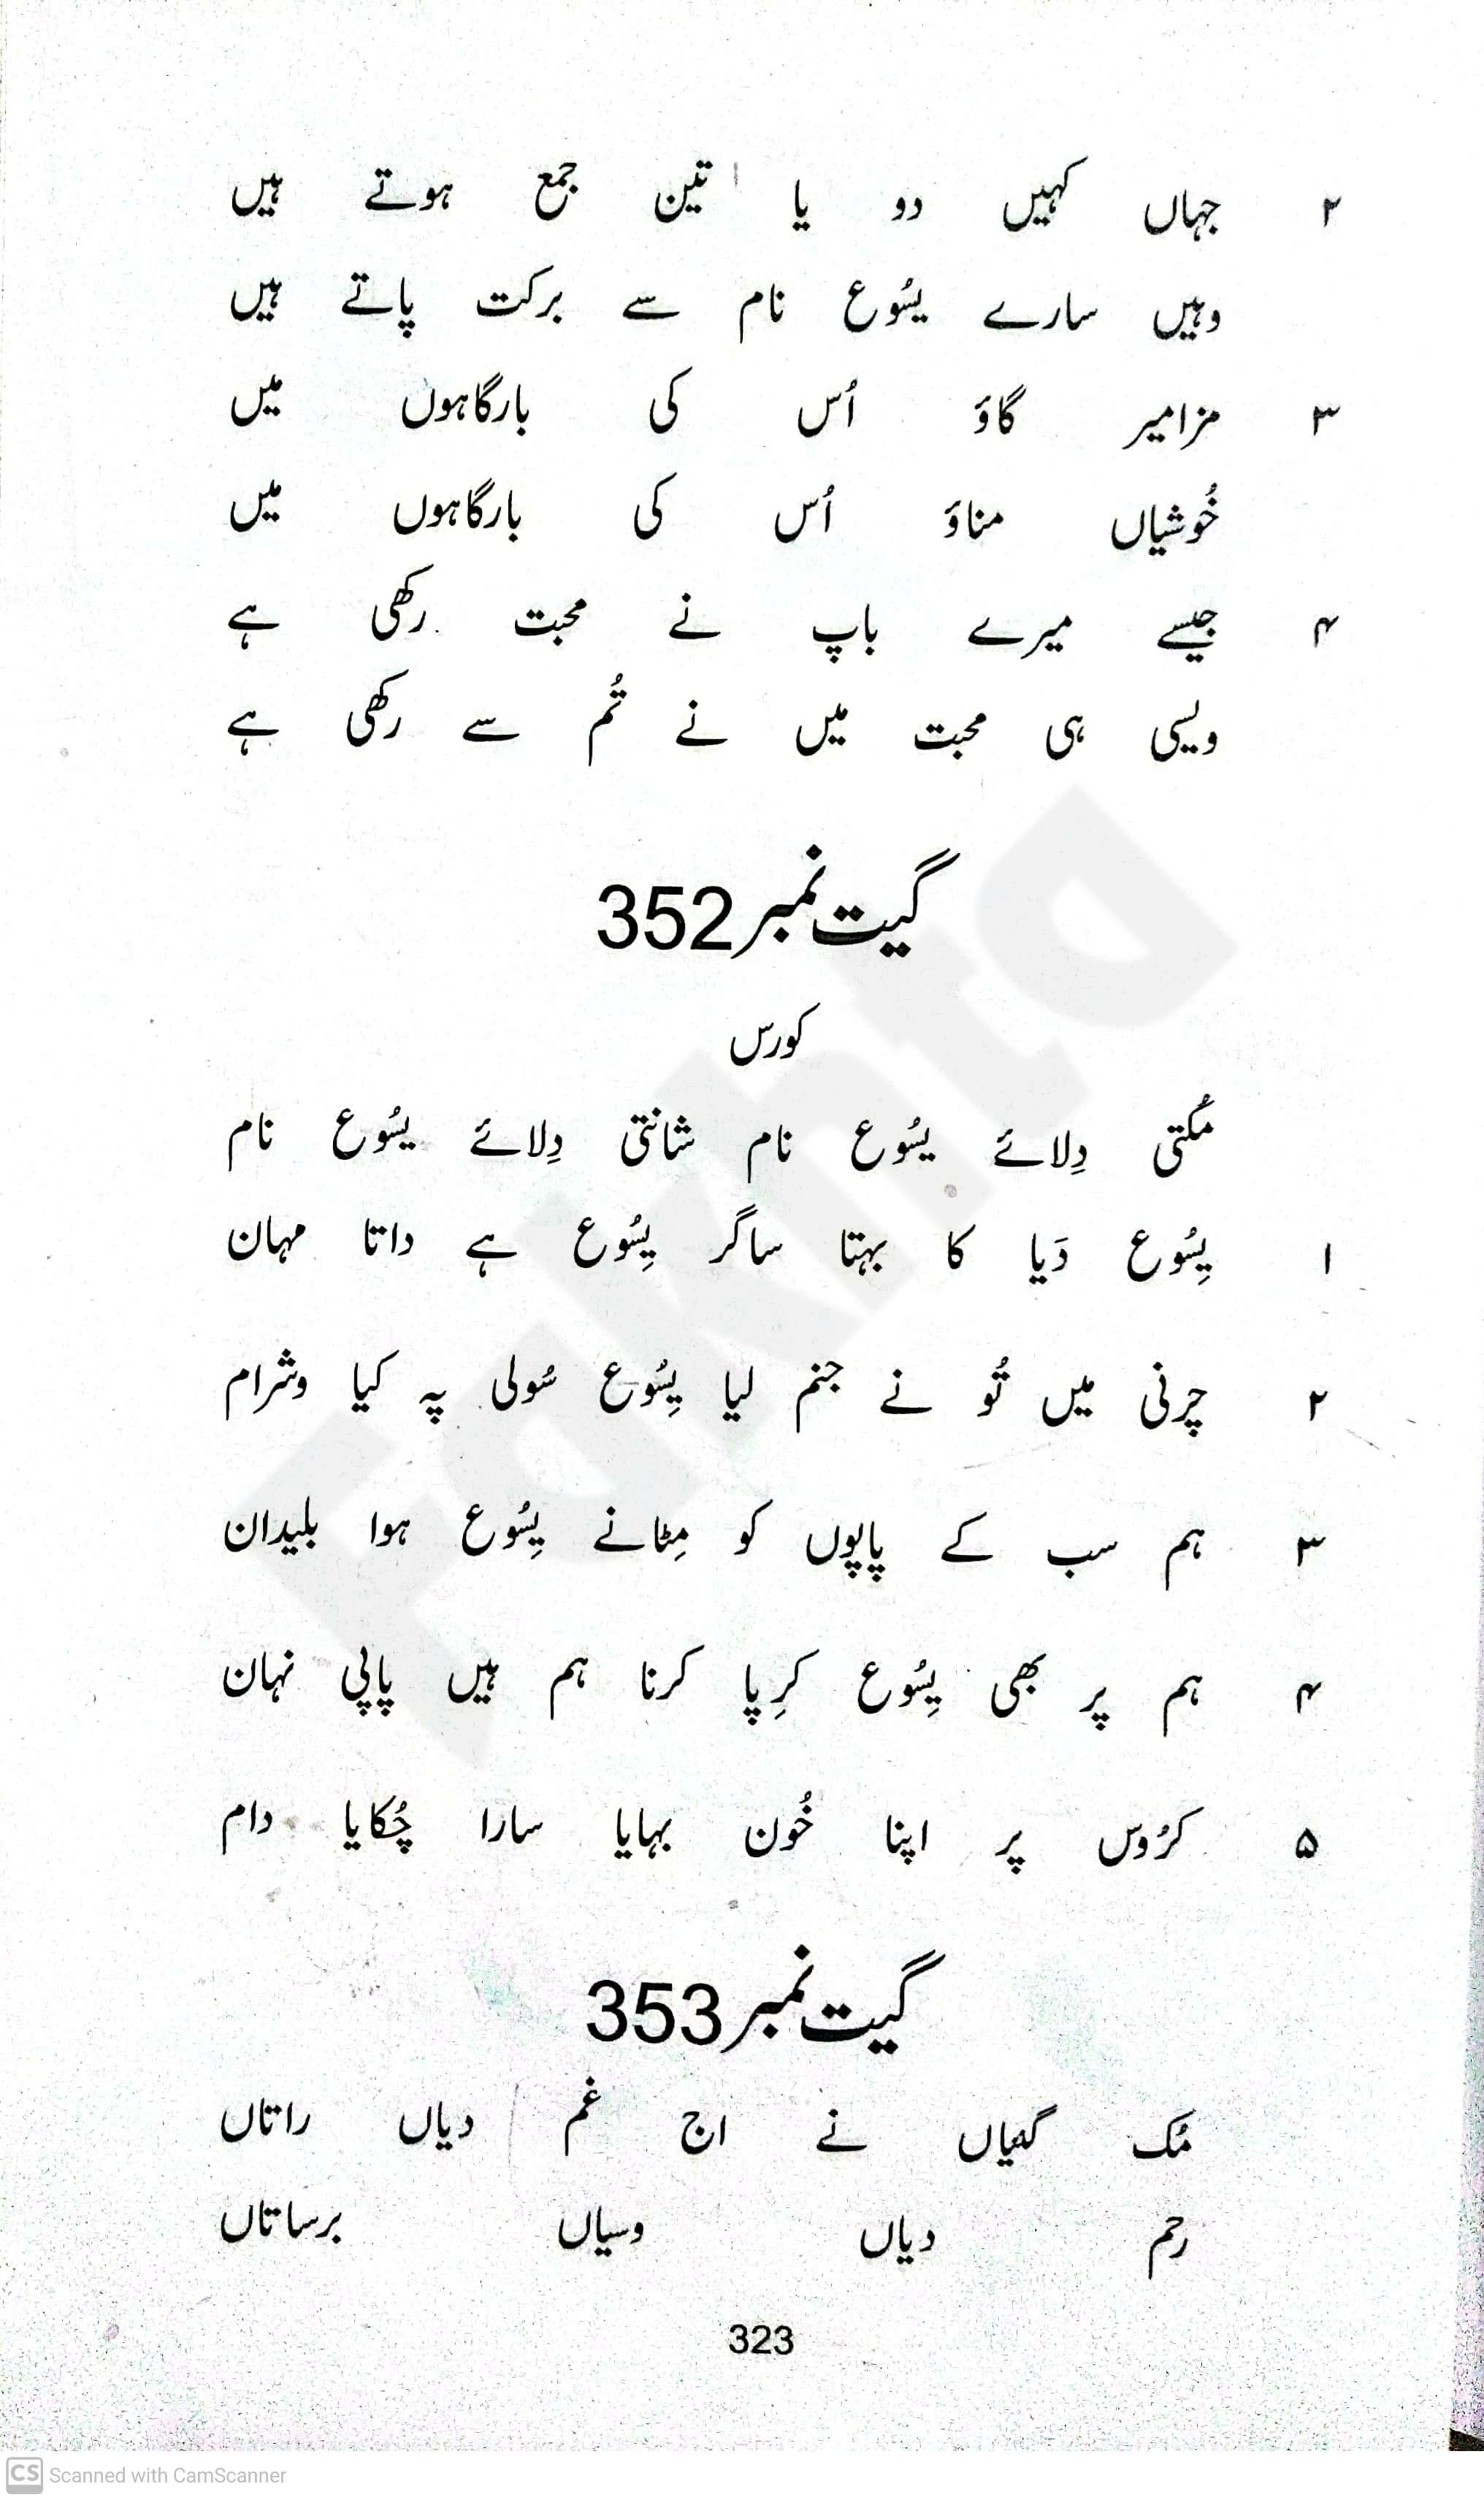 ۲ جہاں کہیں دو یا تین جمع ہوتے ہیں
وہیں سارے یسُوع نام سے برکت پاتے ہیں
۳ مزامیر گاؤ اُس کی بارگاہوں میں
خُوشیاں مناؤ اُس کی بارگاہوں میں
۴ جیسے میرے باپ نے محبت رکھی ہے
ویسی ہی محبت میں نے تُم سے رکھی ہے
گیت نمبر 352
کورس
مُکتی دِلائے یسُوع نام شانتی دِلائے یسُوع نام
۱ یِسُوع دَیا کا بہتا ساگر یِسُوع ہے داتا مہان
۲ چرنی میں تُو نے جنم لیا یِسُوع سُولی پہ کیا وشرام
۳ ہم سب کے پاپوں کو مِٹانے یِسُوع ہوا بلیدان
۴ ہم پر بھی یِسُوع کرِپا کرنا ہم ہیں پاپی نہان
۵ کرُوس پر اپنا خُون بہایا سارا چُکایا دام
گیت نمبر 353
مُک گھیاں نے اج غم دیاں راتاں
رحم دیاں وسیاں برساتاں
323
Fakhta
CS Scanned with CamScanner